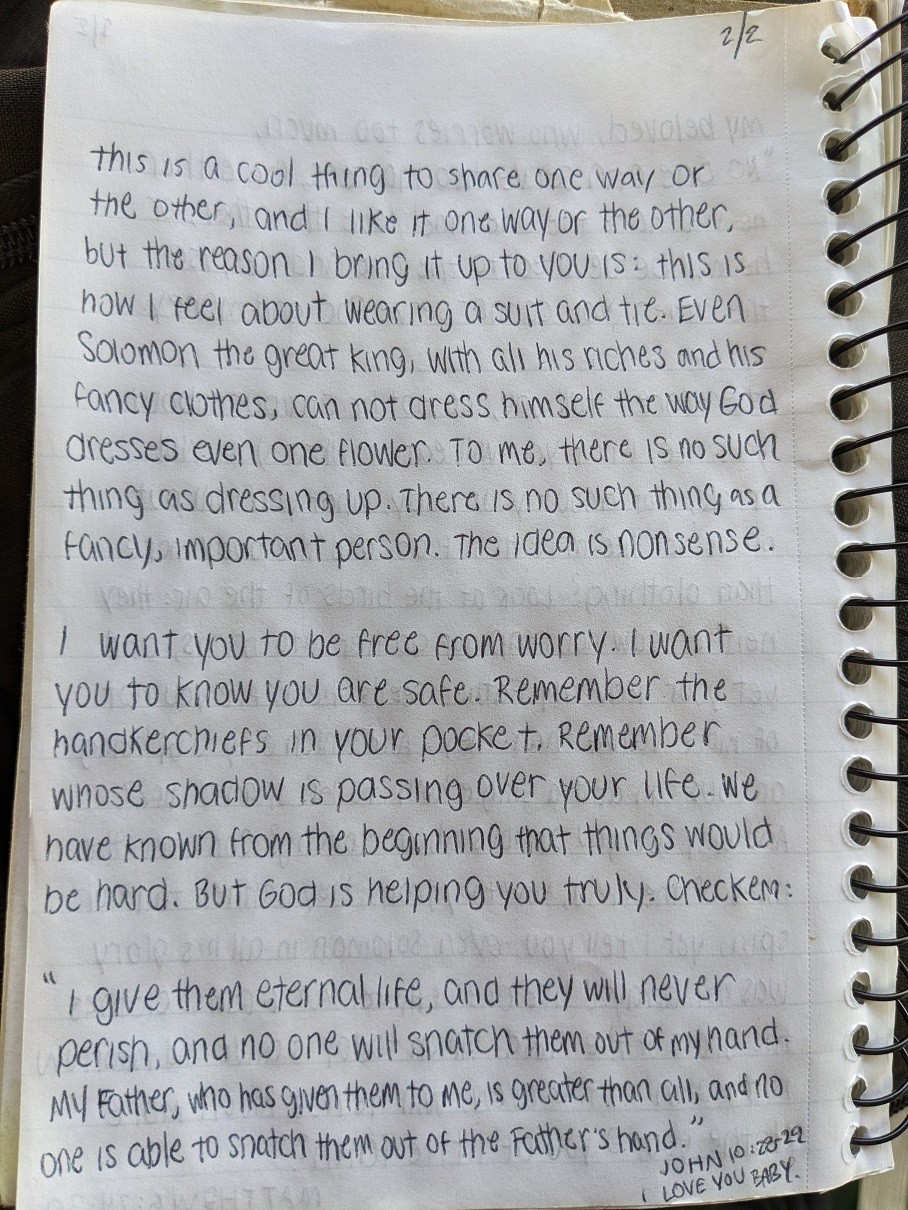 2/2
this is a cool thing to share one way or
the other, and I like it one way or the other,
but the reason I bring it up to you is: this is
how I feel about wearing a suit and tie. Even
Solomon the great king, with all his riches and his
fancy clothes, can not dress himself the way God
dresses even one flower. To me, there is no such
thing as dressing up. There is no such thing as a
fancy, important person. The idea is nonsense.
I want you to be free from worry. I want
you to know you are safe. Remember the
handkerchiefs in your pocket. Remember
whose shadow is passing over your life. We
have known from the beginning that things would
be hard. But God is helping you truly. Checkem:
"I give them eternal life, and they will never
perish, and no one will snatch them out of my hand.
My Father, who has given them to me, is greater than all, and no
one is able to snatch them out of the Father's hand."
JOHN 10:28-29
I LOVE YOU BABY.